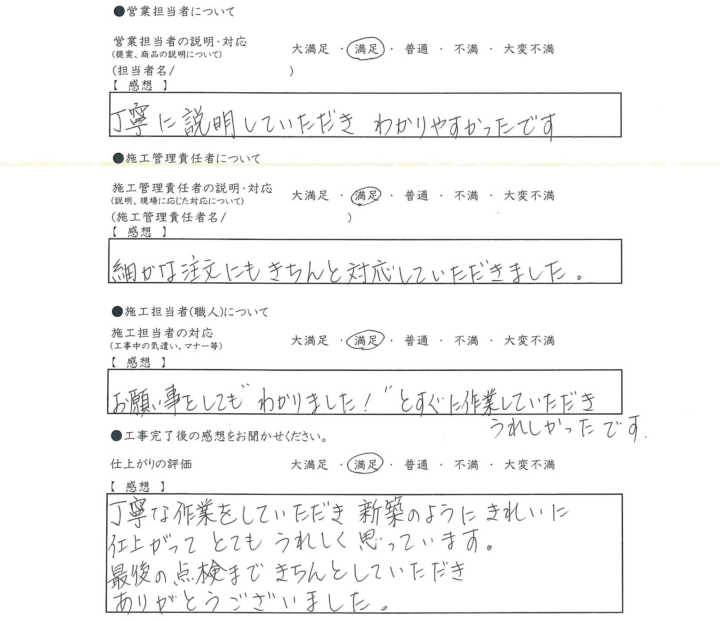 ●営業担当者について
営業担当者の説明・対応 大満足 ・ 満足 ・ 普通 ・ 不満 ・ 大変不満
(提案、商品の説明について)
(担当者名/ )
【 感想 】
丁寧に説明していただき わかりやすかったです
●施工管理責任者について
施工管理責任者の説明・対応 大満足 ・ 満足 ・ 普通 ・ 不満 ・ 大変不満
(説明、現場に応じた対応について)
(施工管理責任者名/ )
【 感想 】
細かな注文にもきちんと対応していただきました。
●施工担当者(職人)について
施工担当者の対応 大満足 ・ 満足 ・ 普通 ・ 不満 ・ 大変不満
(工事中の気遣い、マナー等)
【 感想 】
お願い事をしても"わかりました!"とすぐに作業していただき
うれしかったです.
●工事完了後の感想をお聞かせください。
仕上がりの評価 大満足 ・ 満足 ・ 普通 ・ 不満 ・ 大変不満
【 感想 】
丁寧な作業をしていただき 新築のように きれいに
仕上がって とても うれしく 思っています。
最後の点検まで きちんとしていただき
ありがとうございました。